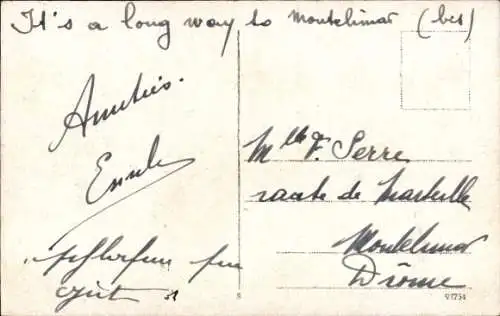 It's a long way to Montelimar (bis)
Amitiés.
Emile
Mlle F. Serre
route de Marseille
Montelimar
Drôme
gut
91754